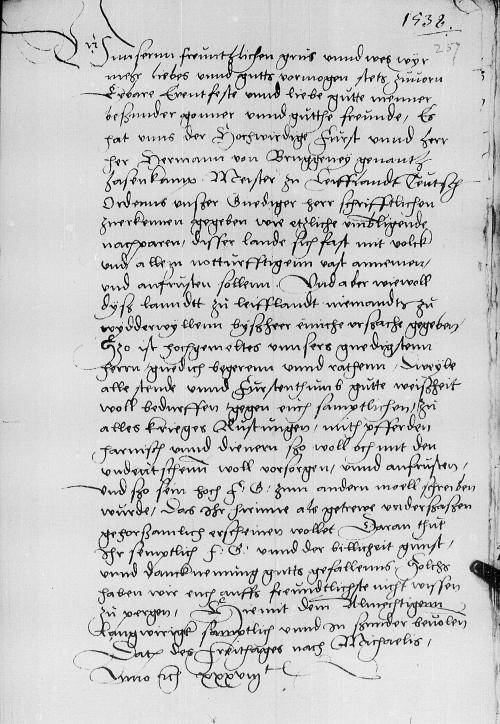 1538.
257
Unnsernn freuntzlichen grus unnd wes wyr
mehr liebes unnd gutts vormogen stets zuuorn
Erbare Erentfeste unnd liebe gutte menner
besunder gonner unnd gutthe freunde, Es
hat unns der Hochwirdige Furst unnd herr
her Hermann von Bruggeney genant
hasenkamp Meister zu Leifflandt Teutsch
Ordenns unsser Gnediger herr schrifftlichen
zuerkennen gegeben wie etzliche umbligende
nachparen, disser lande sich fast mit volck
und allem notturfftigenn vast annemen,
und anfrusten sollenn. Und aber wiewoll
dyss lanndtt zu leifflandt niemandts zu
wydderwyllenn byssheer einiche ursache gegeben
Szo ist hochgemeltes unnsers gnedigstenn
herrn gnedich begerenn unnd rathenn, dweyle
alle stende unnd Furstenthumb gutte weissheit
woll bedurffen gegen euch samptlichen, zu
alles krieges Rustungen, mith pfferden
harnisch unnd dienern szo woll och mit den
undeutschenn woll vorsorgen, unnd anfrusten,
Und szo sein hoch f. G. zum andern moell schreiben
wurde, das Ihr hirinne als getrewe underssassen
gehorssamlich erscheinen wollet Daran thut
Ihr semptlich f. G. unnd der billicheit gunst,
unnd danckneinung gutts gefallenns, Solchs
haben wir euch auffs freundtlichste nicht wissen
zu pergen, Hiemit dem Almechtigenn
langwirigk samptlich unnd in sunder beuolen
Datum des Freithages nach Michaelis,
Anno etc xxxviii